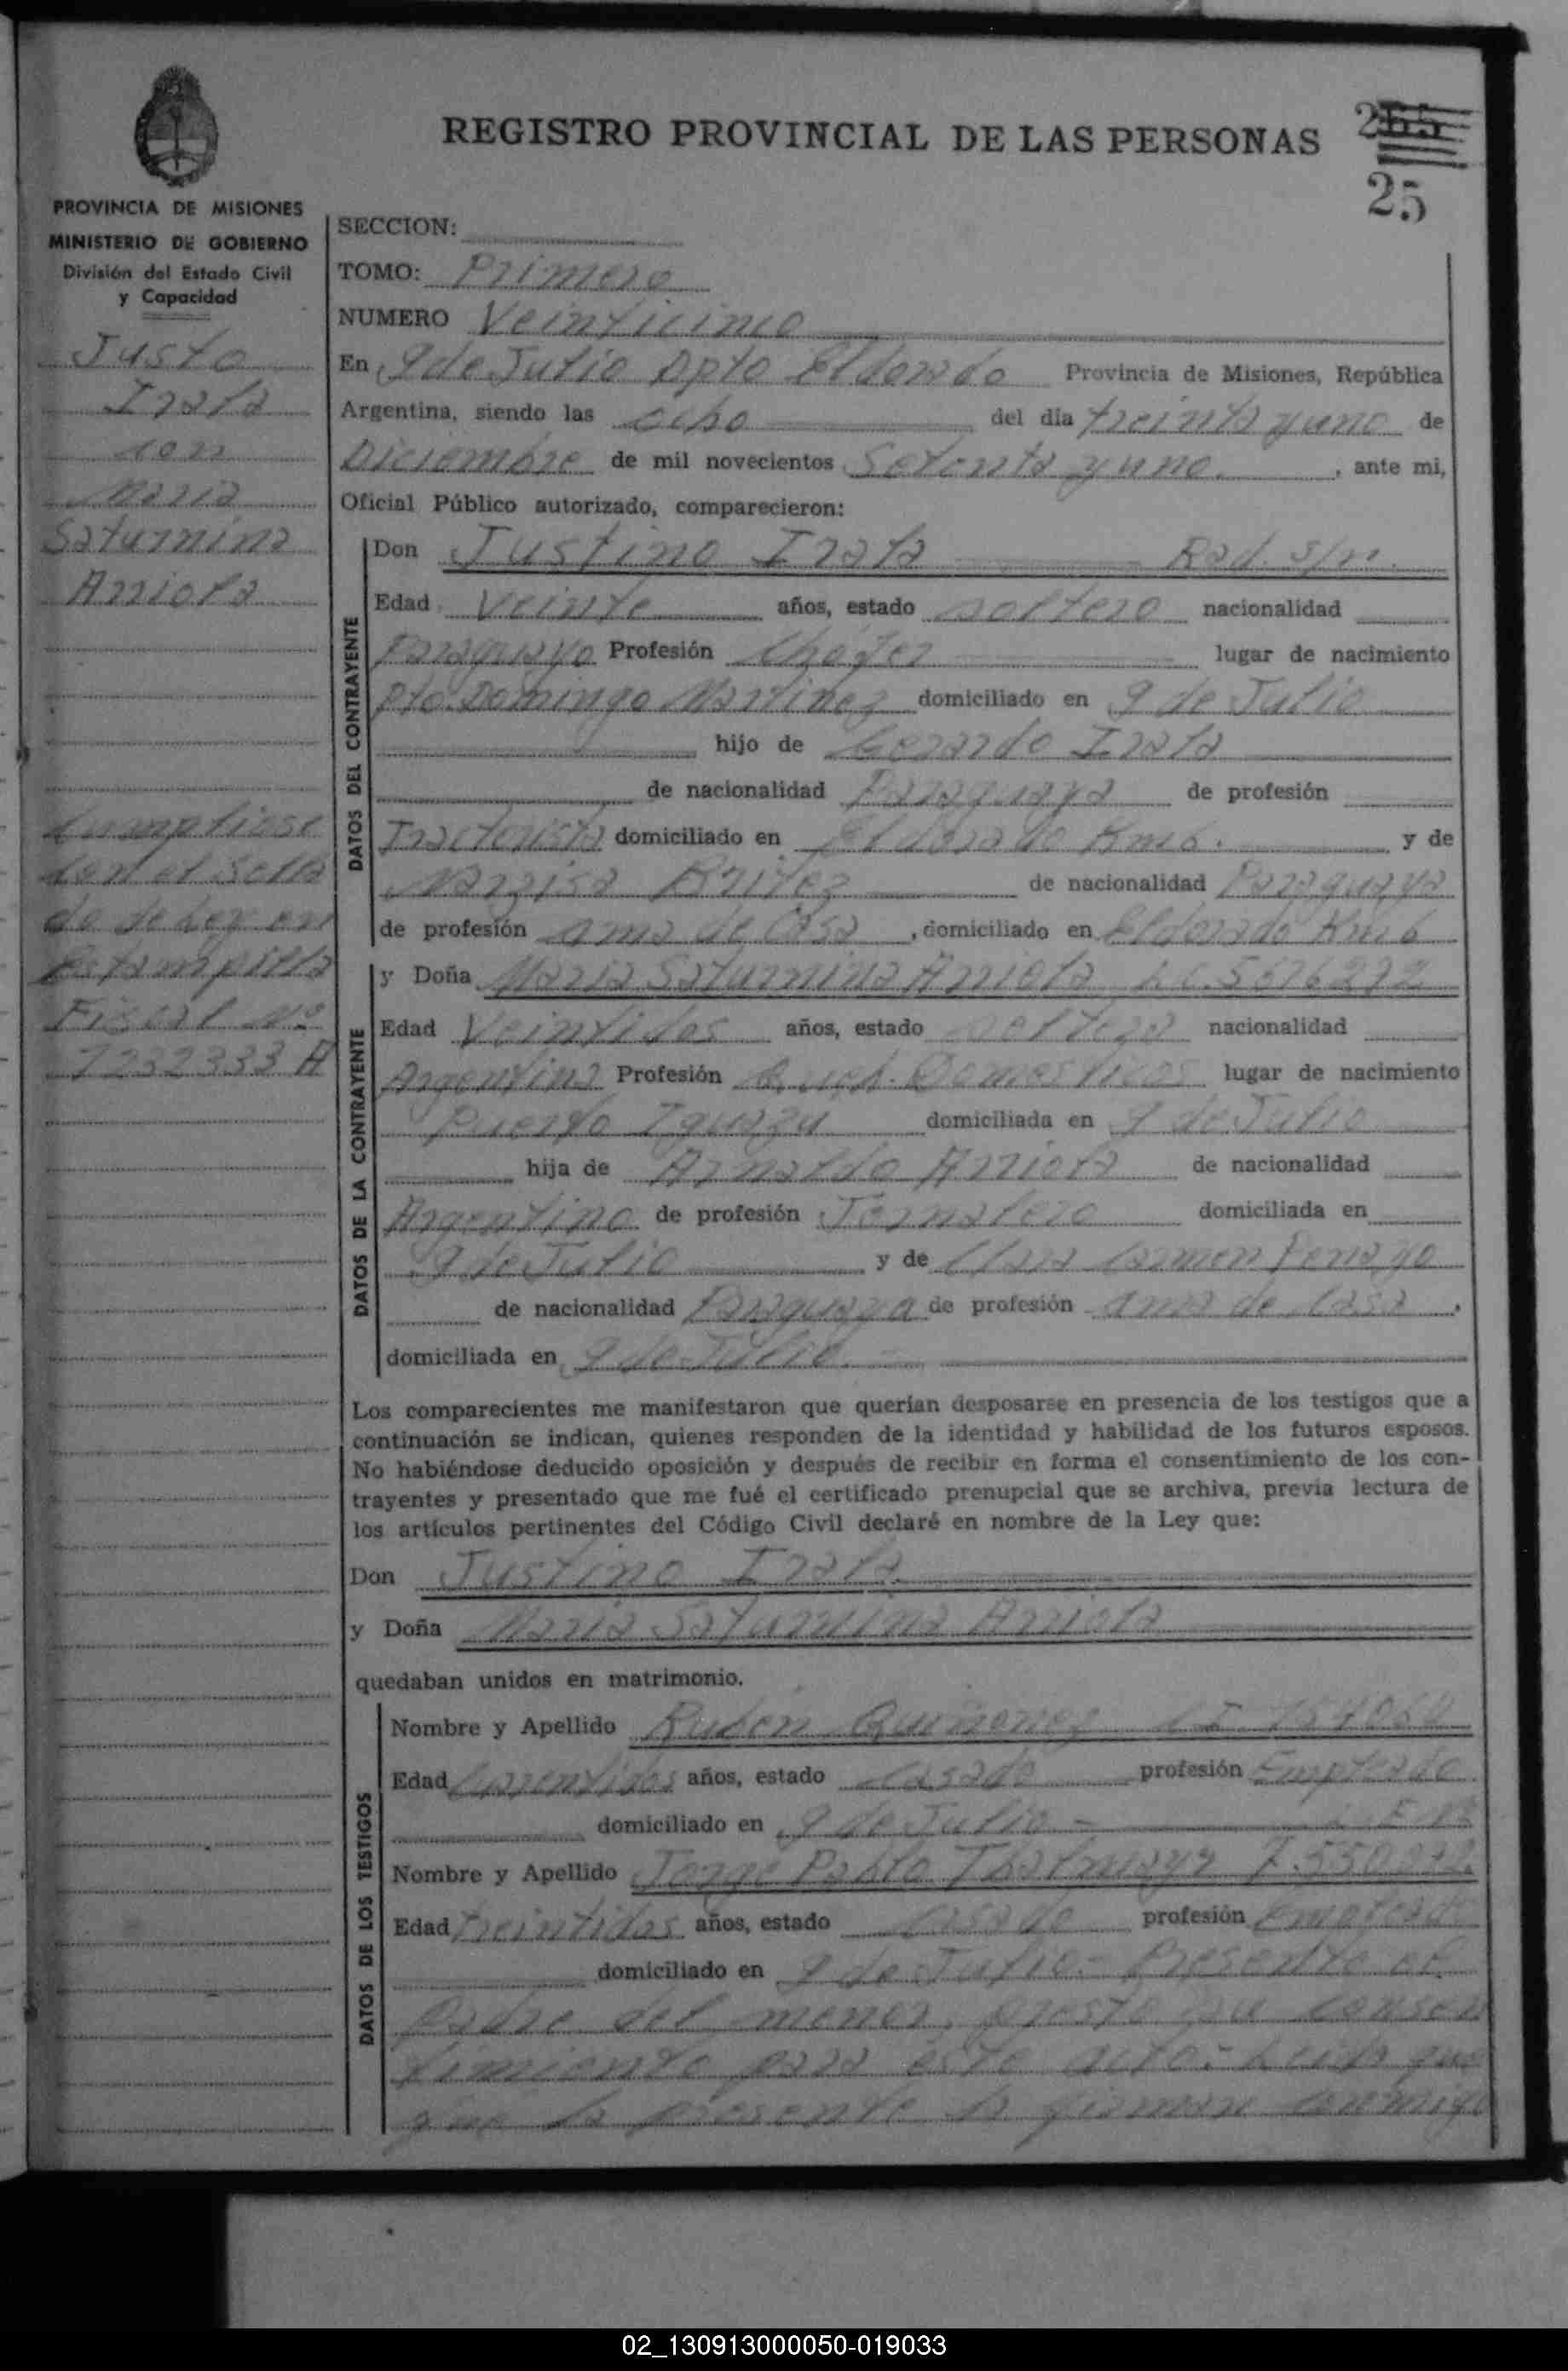 REGISTRO PROVINCIAL DE LAS PERSONAS
265
25
PROVINCIA DE MISIONES
MINISTERIO DE GOBIERNO
División del Estado Civil
y Capacidad
Justo
Irala
con
Maria
Saturnina
Arriola
Cumpliose
con el Sella
do de Ley en
Estampilla
Fiscal Nº
1232333 A
SECCION:
TOMO: Primero
NUMERO Veinticinco
En 9 de Julio Dpto Eldorado Provincia de Misiones, República
Argentina, siendo las ocho del día treinta y uno de
Diciembre de mil novecientos Setenta y uno. , ante mi,
Oficial Público autorizado, comparecieron:
DATOS DEL CONTRAYENTE
Don Justino Irala Rad. S/n.
Edad Veinte años, estado soltero nacionalidad
Paraguayo Profesión Chofer lugar de nacimiento
Pto. Domingo Martinez domiciliado en 9 de Julio
hijo de Gerardo Irala
de nacionalidad Paraguaya de profesión
Tractorista domiciliado en Eldorado Km 6. y de
Narzisa Britez de nacionalidad Paraguaya
de profesión ama de Casa , domiciliado en Eldorado Km 6
DATOS DE LA CONTRAYENTE
y Doña Maria Saturnina Arriola L.C. 5676272
Edad Veintidos años, estado soltera nacionalidad
Argentina Profesión Domesticos lugar de nacimiento
Puerto Iguazu domiciliada en 9 de Julio
hija de Arnaldo Arriola de nacionalidad
Argentino de profesión Jornalero domiciliada en
9 de Julio y de Clara Carmen Penayo
de nacionalidad Paraguaya de profesión ama de casa .
domiciliada en 9 de Julio.-
Los comparecientes me manifestaron que querían desposarse en presencia de los testigos que a
continuación se indican, quienes responden de la identidad y habilidad de los futuros esposos.
No habiéndose deducido oposición y después de recibir en forma el consentimiento de los con-
trayentes y presentado que me fué el certificado prenupcial que se archiva, previa lectura de
los artículos pertinentes del Código Civil declaré en nombre de la Ley que:
Don Justino Irala.
y Doña Maria Saturnina Arriola
quedaban unidos en matrimonio.
DATOS DE LOS TESTIGOS
Nombre y Apellido Ruben Quiñonez C I 157060
Edad Cuarentidos años, estado Casado profesión Empleado
domiciliado en 9 de Julio - L E Nº
Nombre y Apellido Jorge Pablo 7.550.272
Edad treintidos años, estado casado profesión Empleado
domiciliado en 9 de Julio - Presente el
padre del menor, presto su consen
timiento para este acto.- Leida que
fue la presente la firman conmigo
02_130913000050-019033